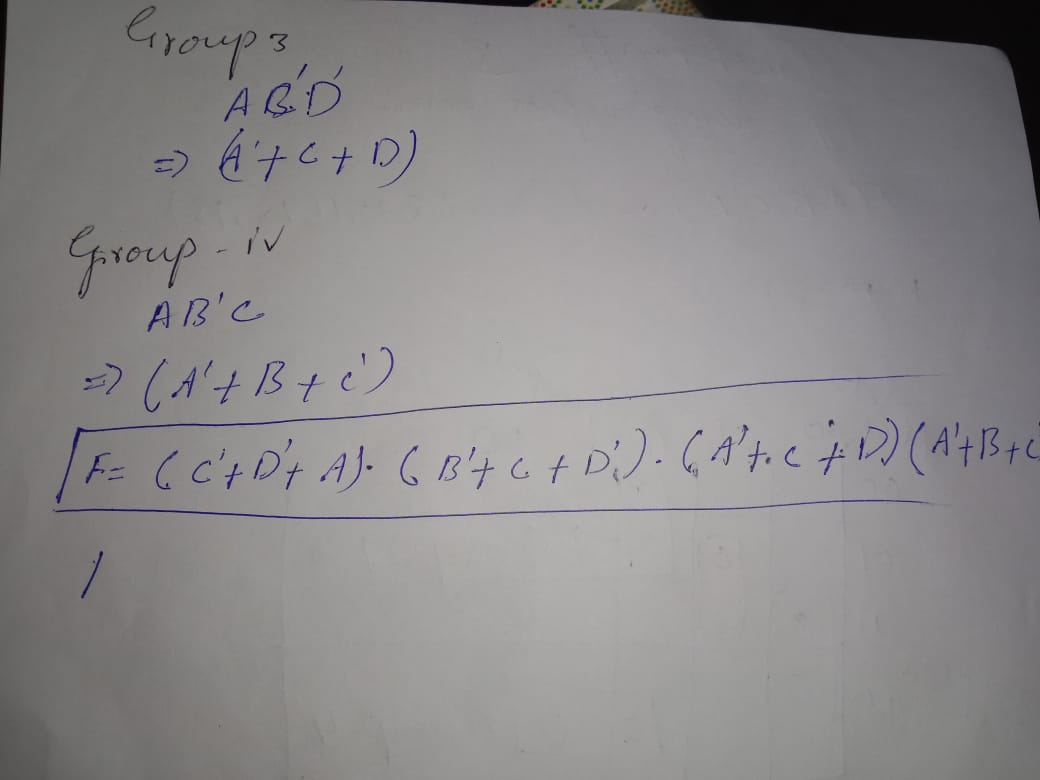 Group 3
AB'D'
=> (A'+C+D)
Group-iv
AB'C
=> (A'+B+C')
F= (C'+D'+A). (B'+C+D'). (A'+C+D)(A'+B+C